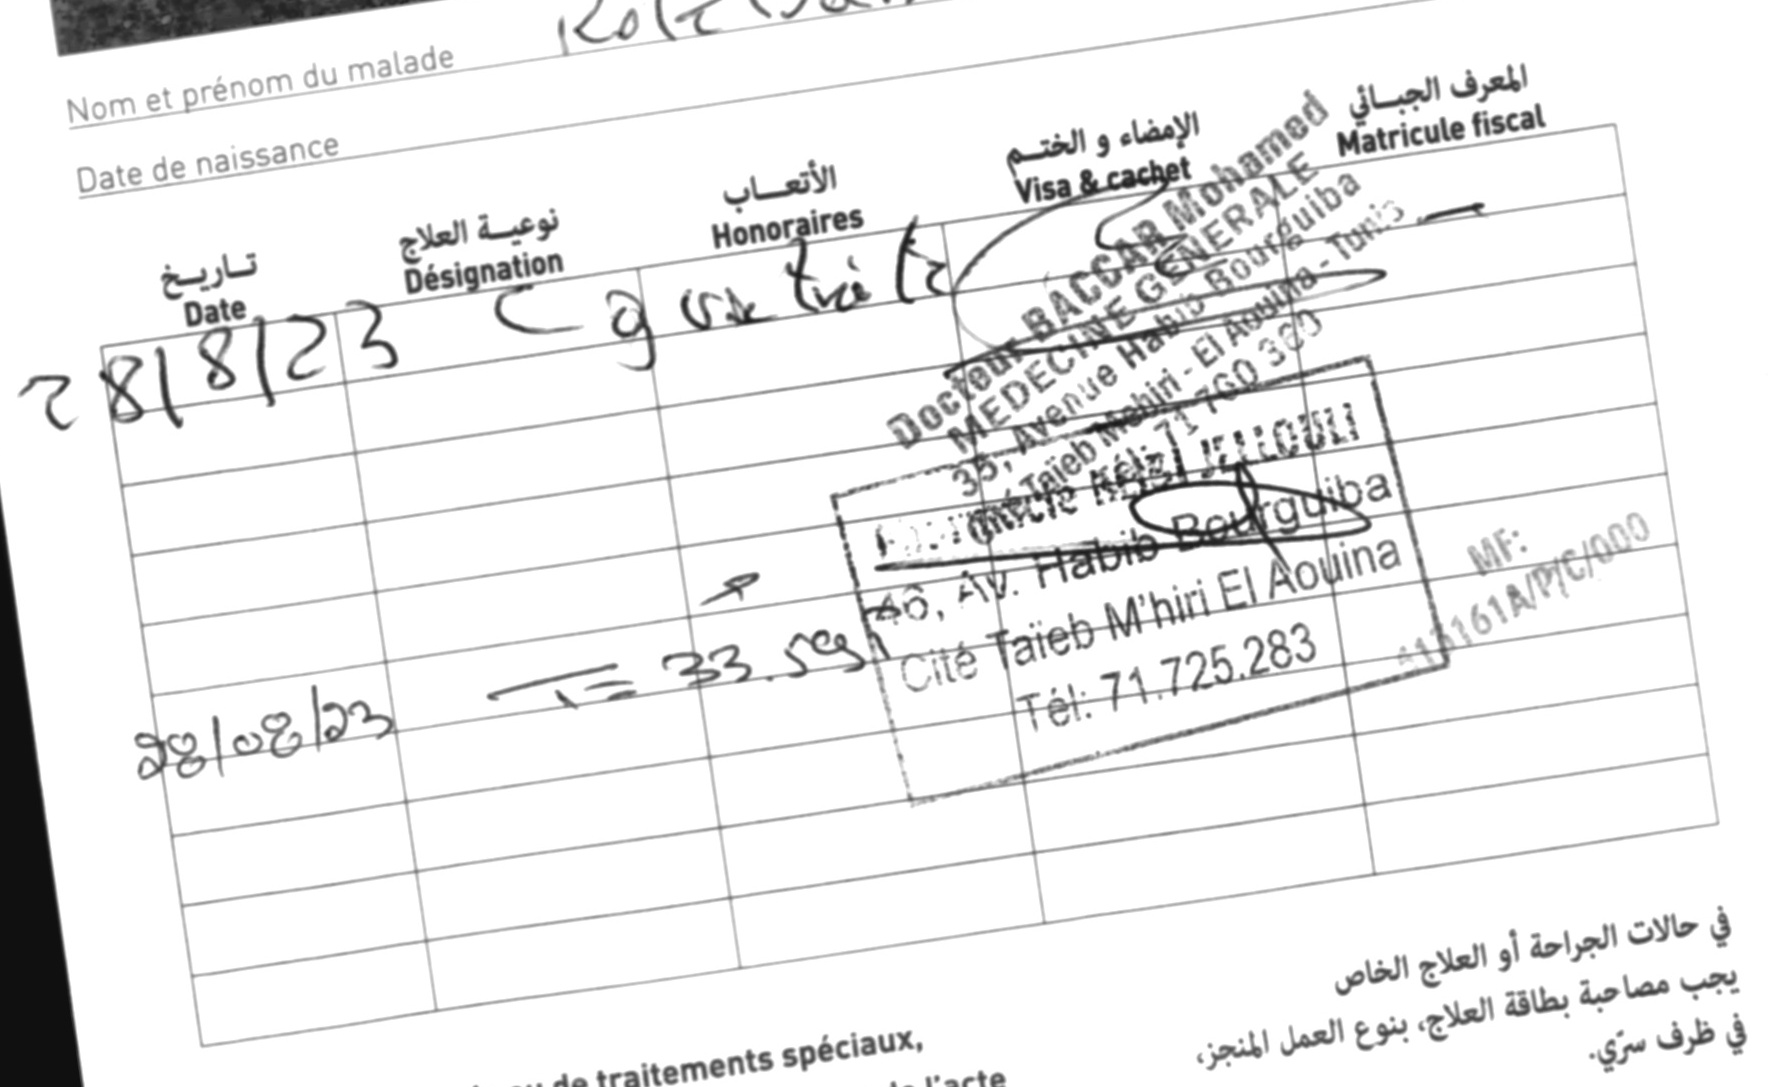 Nom et prénom du malade
Date de naissance
تاريخ
Date
نوعية العلاج
Désignation
الأتعاب
Honoraires
الإمضاء و الختم
Visa & cachet
المعرف الجبائي
Matricule fiscal
28/8/23 C gratuite
Docteur BACCAR Mohamed
MEDECINE GENERALE
35, Avenue Habib Bourguiba
Taïeb Mehiri - El Aouina - Tunis
71 760 360
JELLOULI
46, Av. Habib Bourguiba
Cité Taïeb M'hiri El Aouina
Tél: 71.725.283
MF:
161A/P/C/000
28/08/23 = 33.
في حالات الجراحة أو العلاج الخاص
يجب مصاحبة بطاقة العلاج، بنوع العمل المنجز،
في ظرف سرّي.
de traitements spéciaux,
l'acte